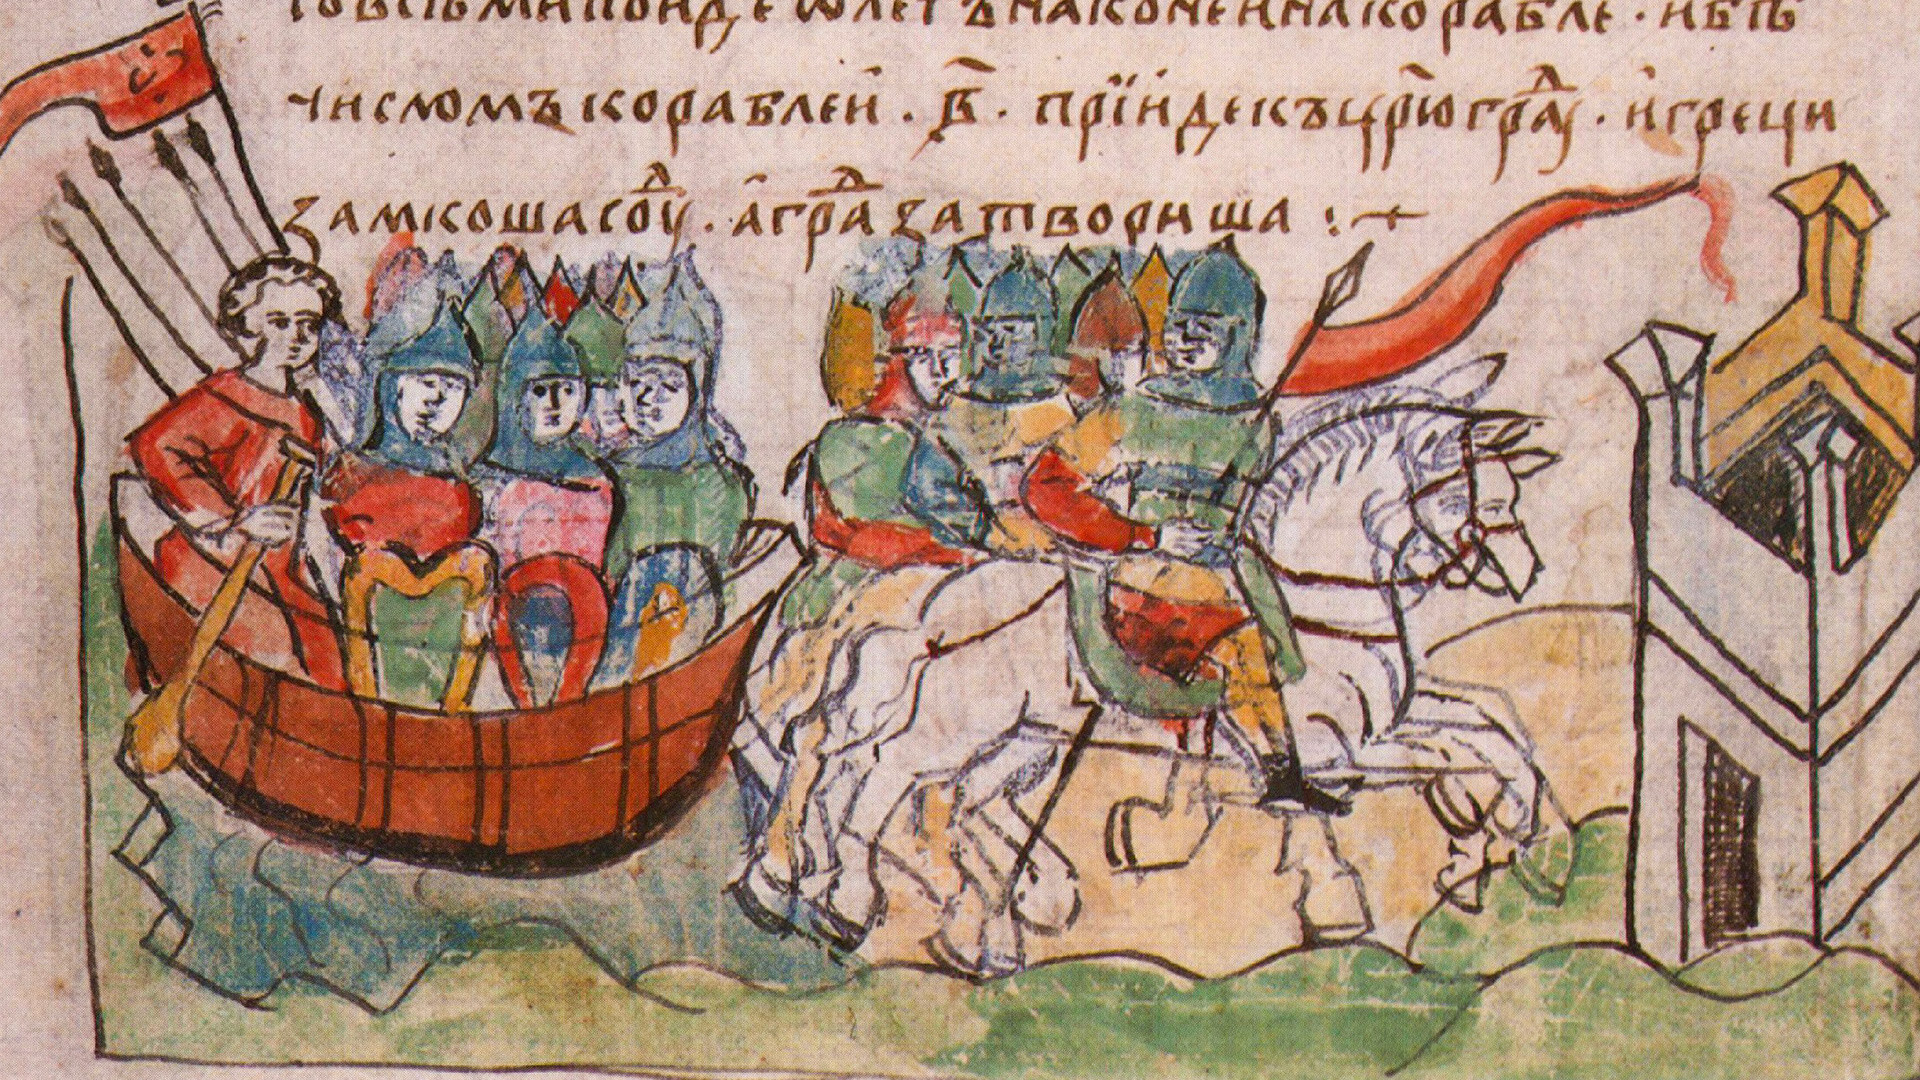 всѣми поиде ѡлегъ на конеи и на корабле · и бѣ
числомъ кораблеи · в҃ · прїиде къ цр҃юграⷣу · и греци
замкоша соⷣу · а граⷣ затвориша :~